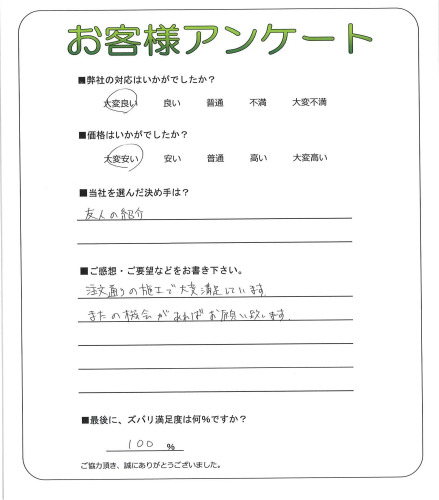 お客様アンケート
■弊社の対応はいかがでしたか？
大変良い 良い 普通 不満 大変不満
■価格はいかがでしたか？
大変安い 安い 普通 高い 大変高い
■当社を選んだ決め手は？
友人の紹介
■ご感想・ご要望などをお書き下さい。
注文通りの施工で大変満足しています。
またの機会があればお願い致します。
■最後に、ズバリ満足度は何%ですか？
100 %
ご協力頂き、誠にありがとうございました。